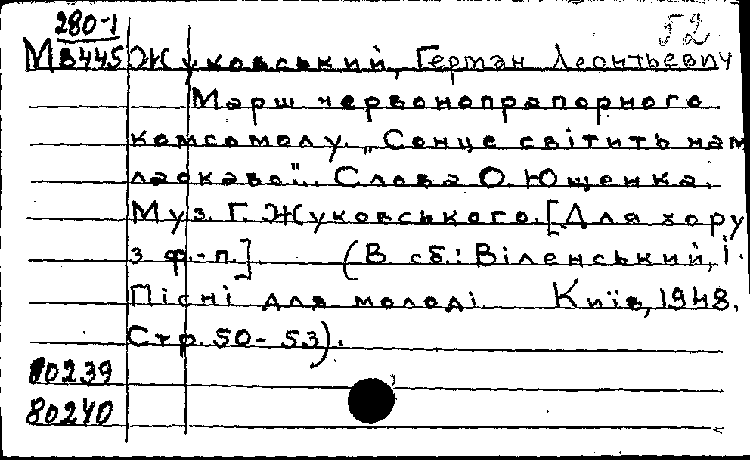 280-1
52
М В445 Жуковський, Герман Леонтьевич
Марш червонопрапорного
комсомолу. „Сонце світить нам
ласкаво".. Слова О. Ющенка.
Муз. Г. Жуковського. [Для хору
з ф.-п.] (В сб.: Віленський, І.
Пісні для молоді. Київ, 1948.
Стр. 50-53).
80239
80240